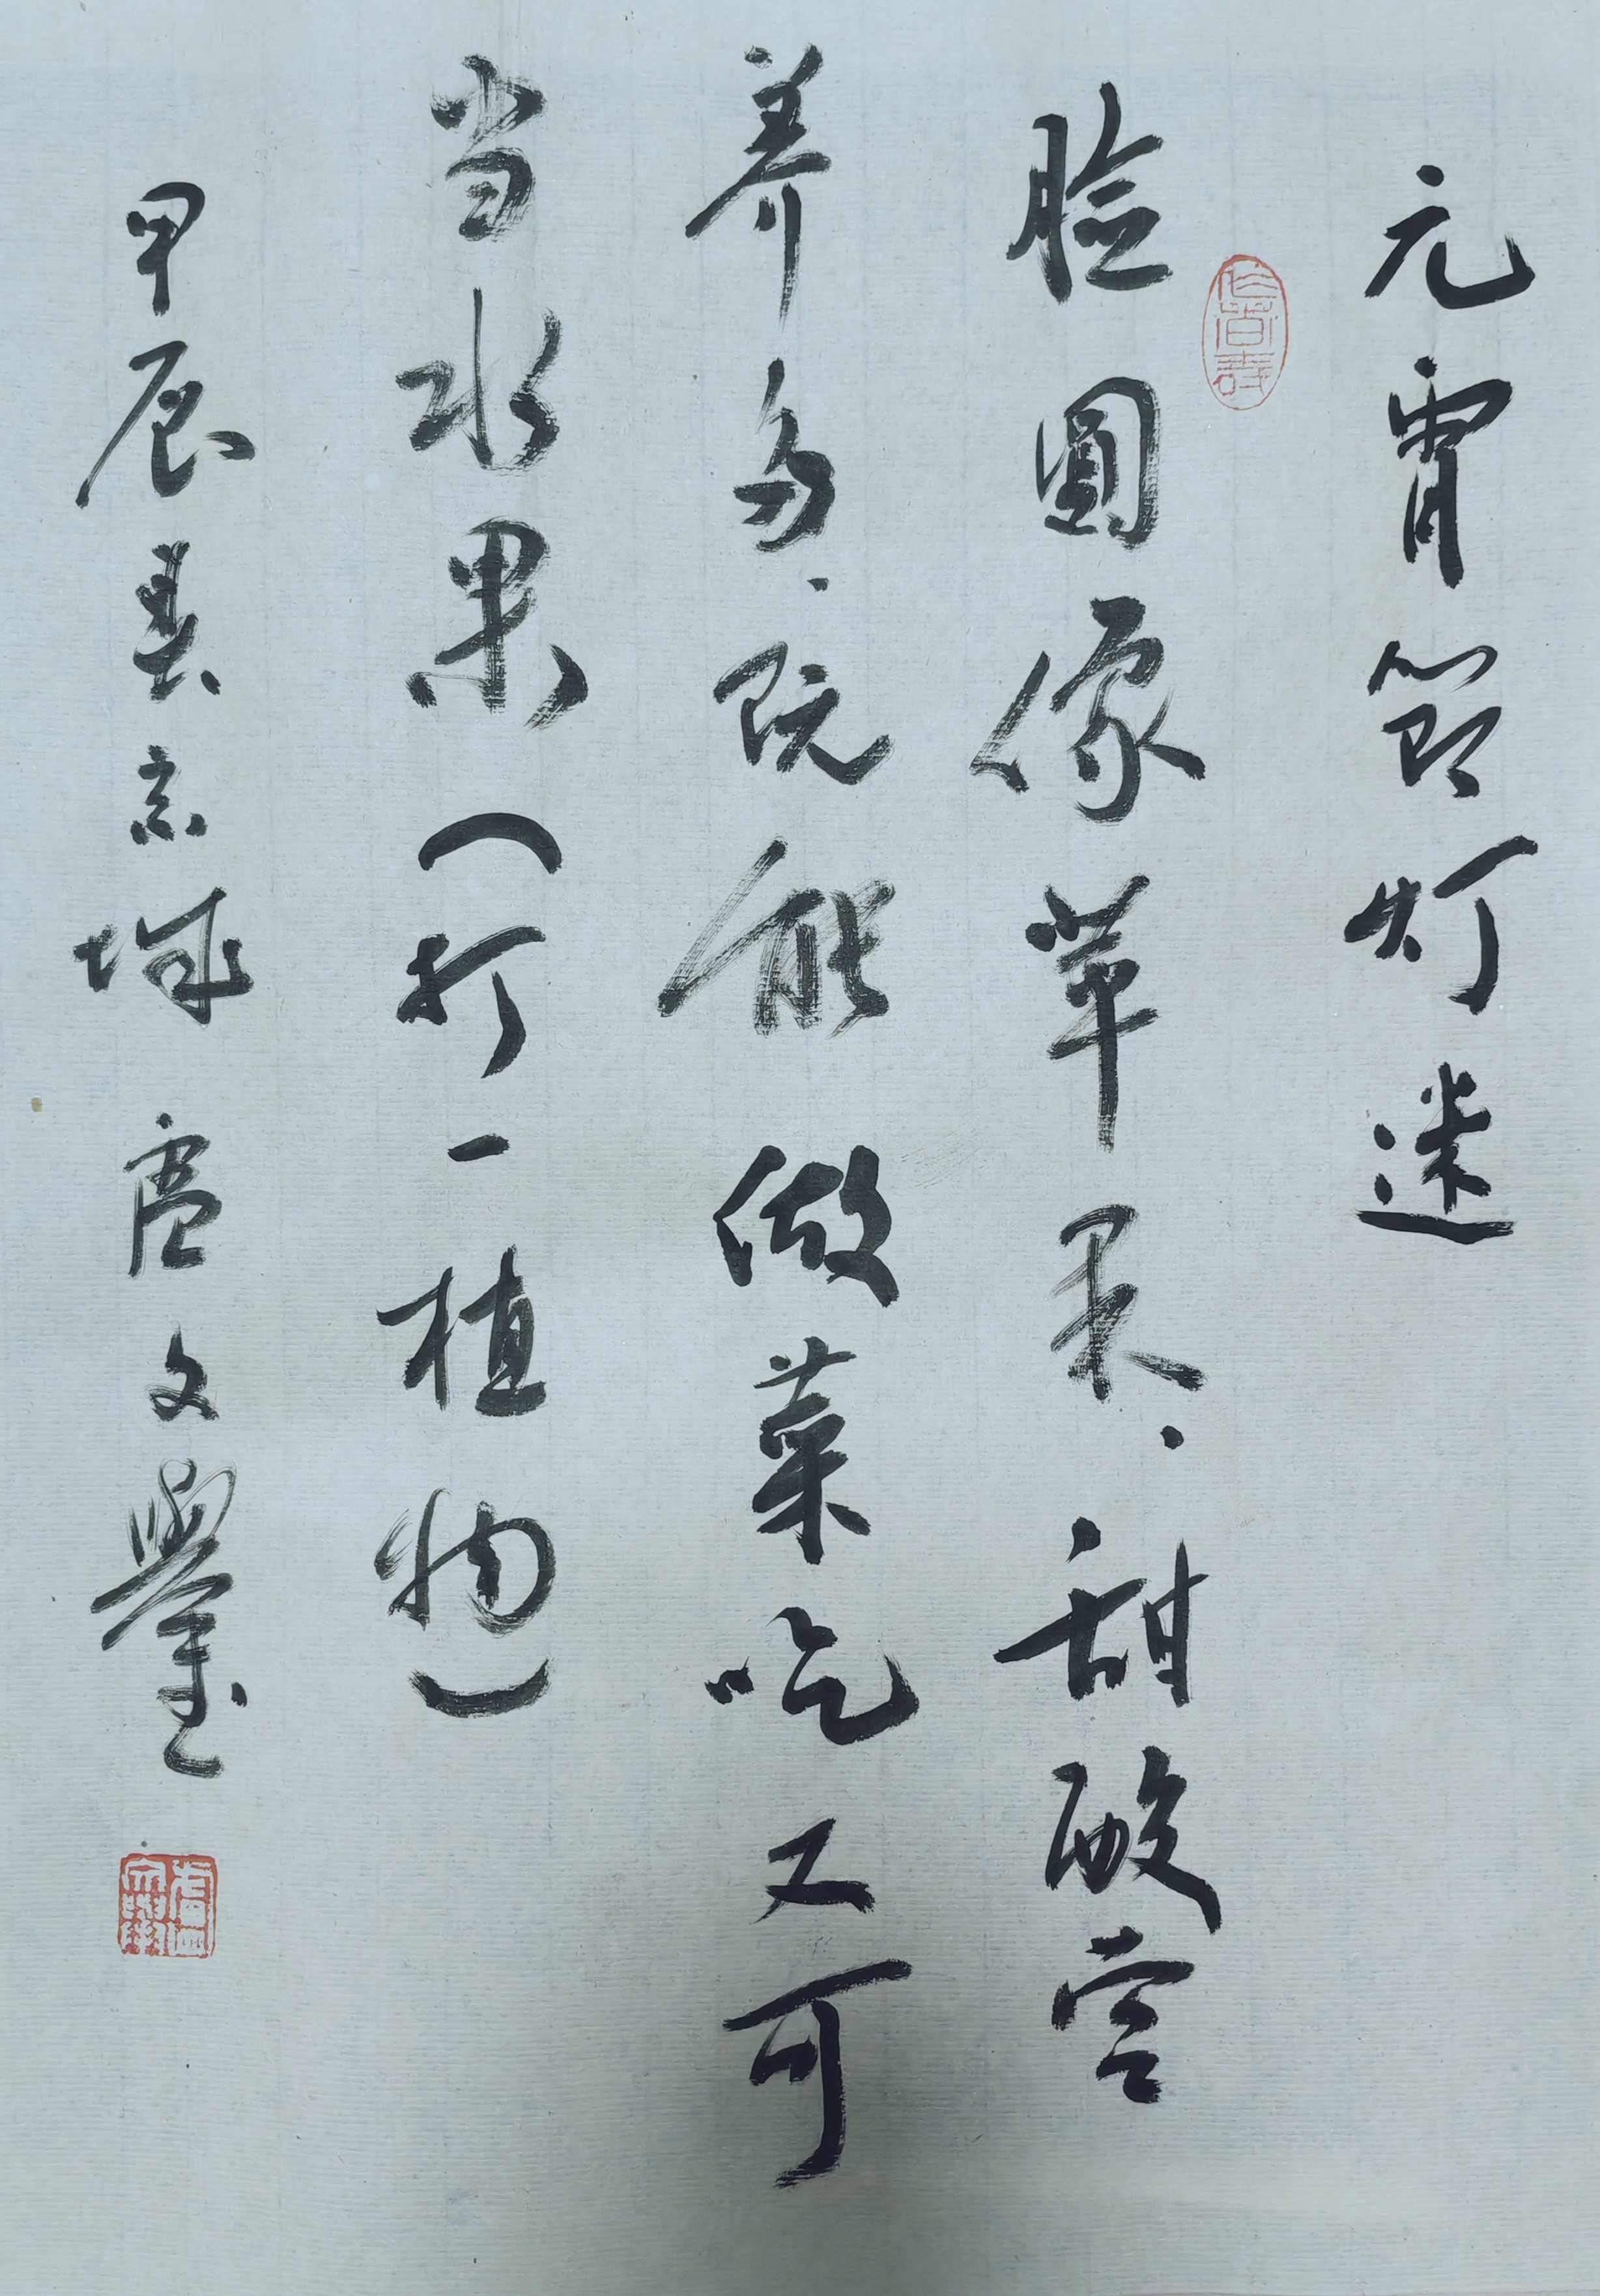 元宵節灯迷
脸圓像苹果.甜酸营
养多.既能做菜吃又可
当水果(打一植物)
甲辰春京城 卢文璺